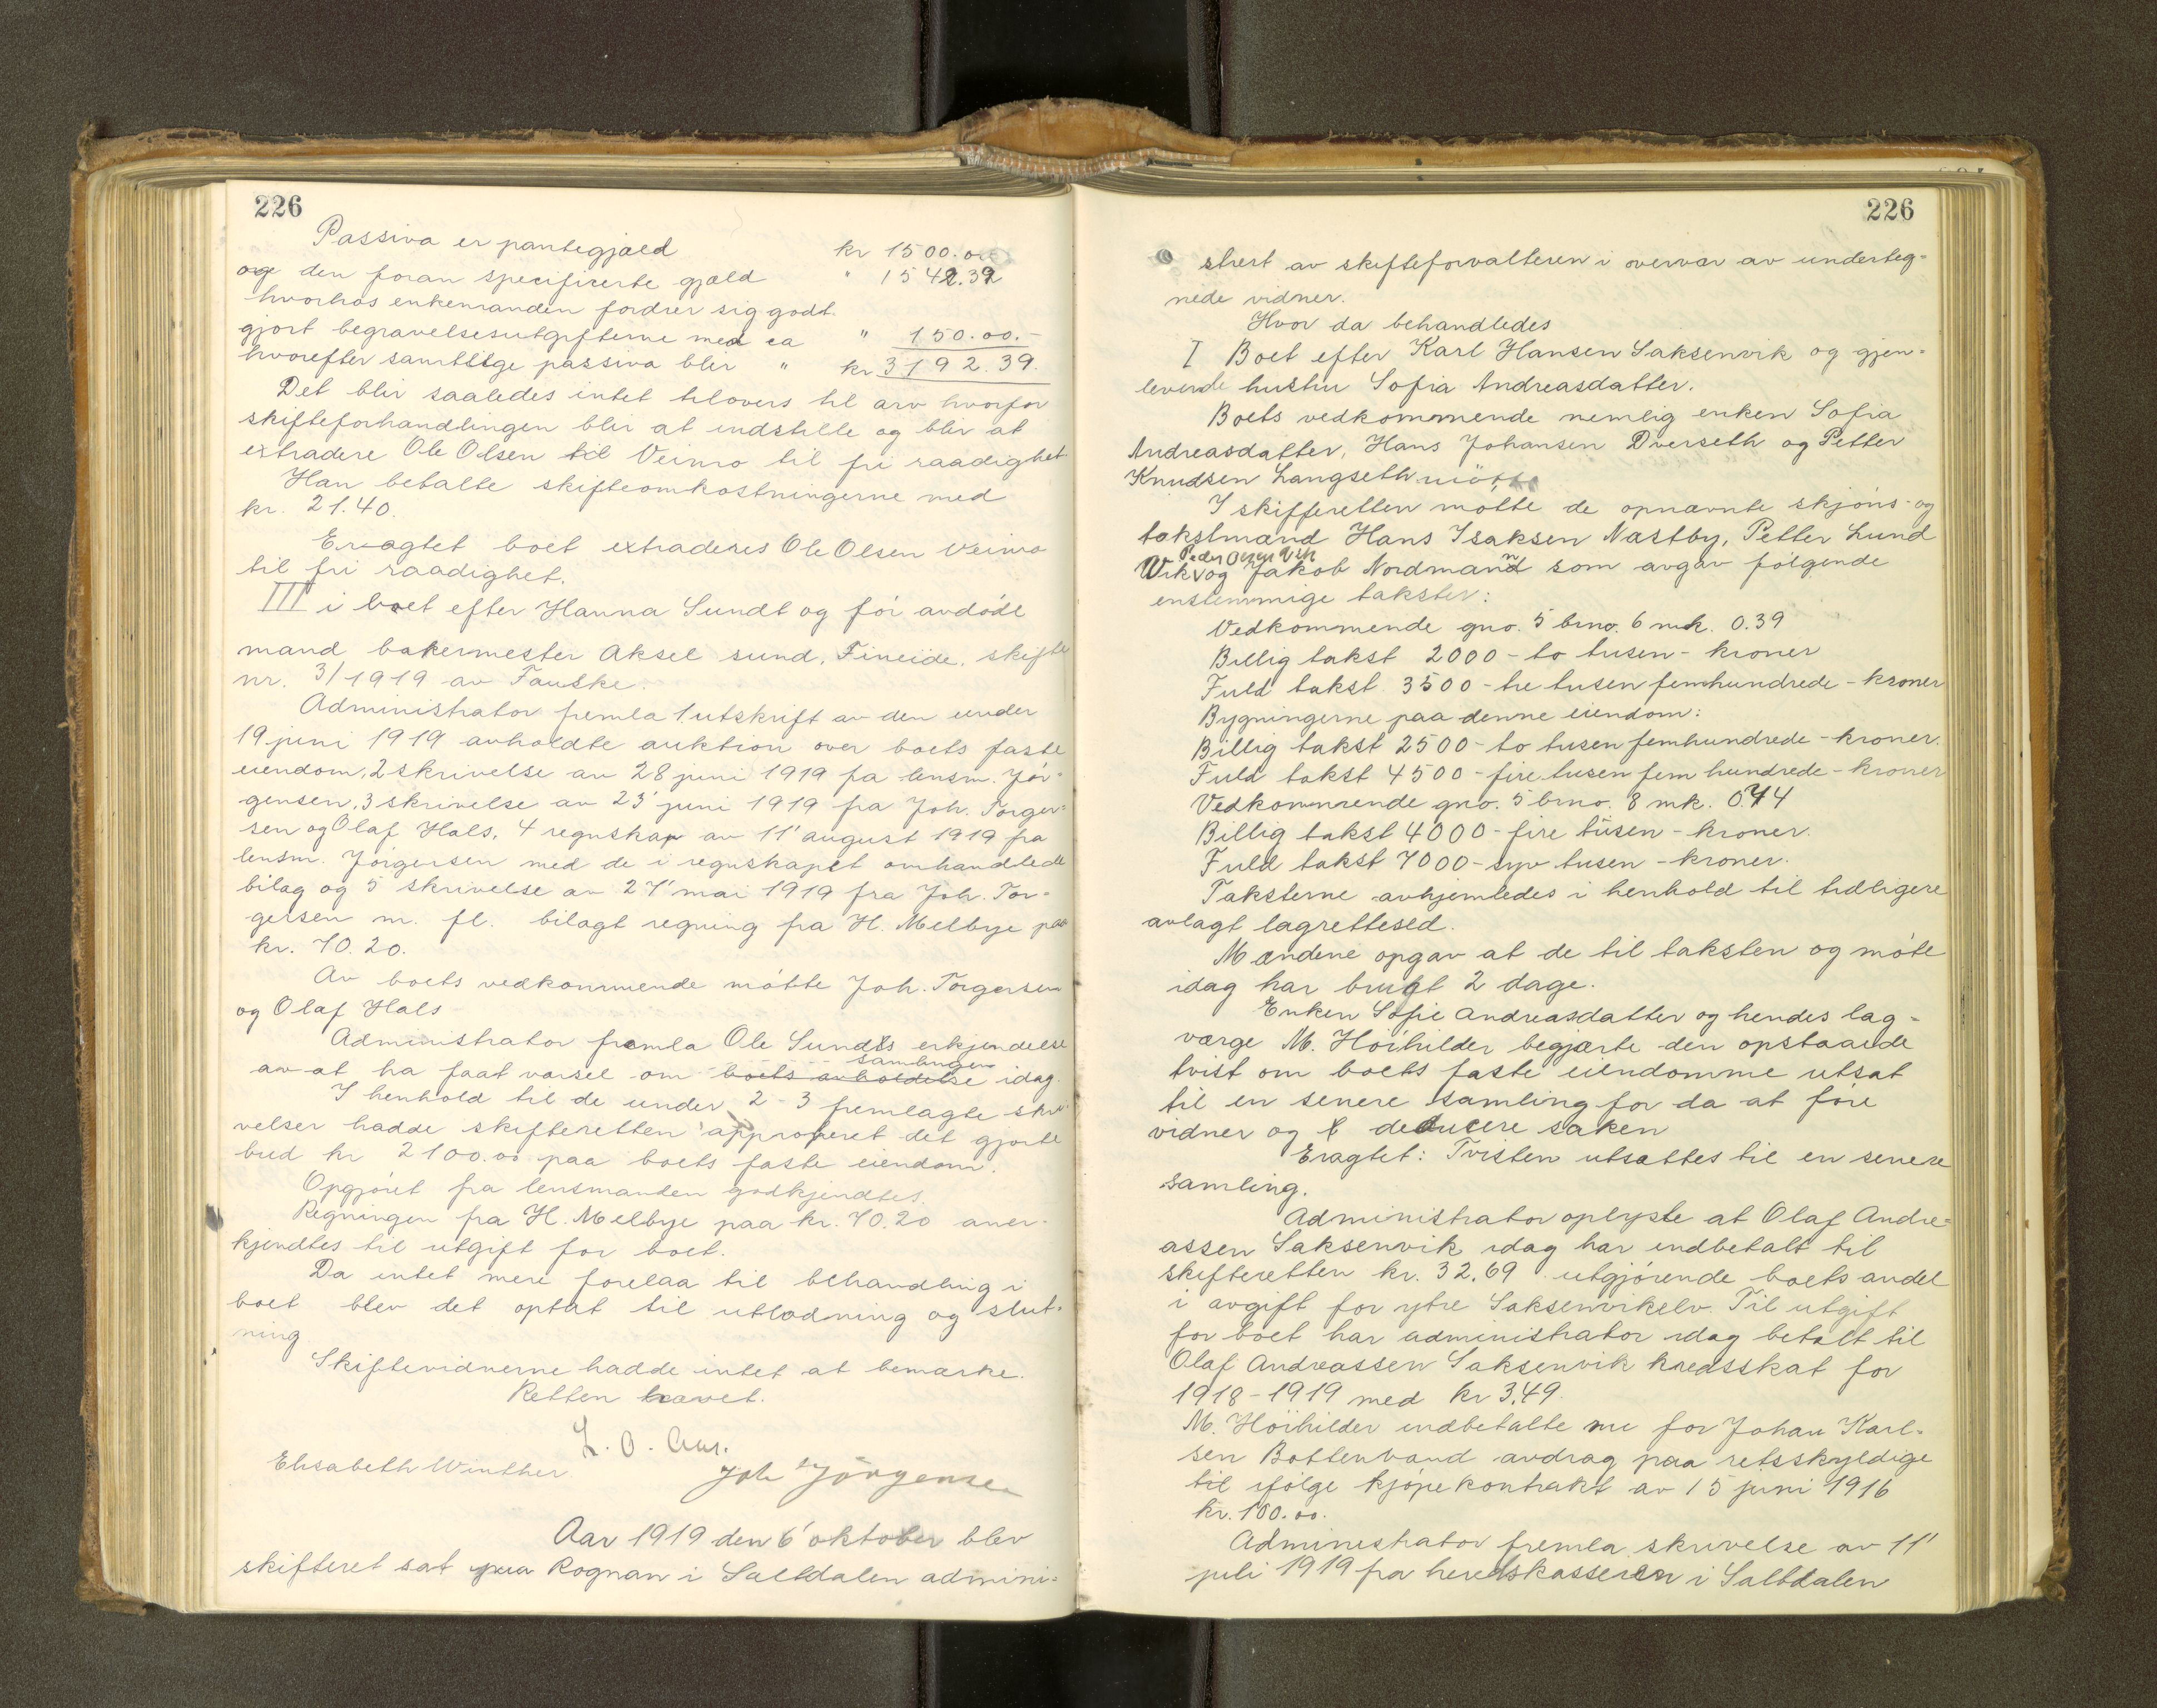 226
Passiva er pantegjæld kr 1500.00
og den foran specificerte gjæld " 1542.39
hvorhos enkemanden fordrer sig godt-
gjort begravelsesutgifterne med ca " 150.00.-
hvorefter samtlige passiva blir " kr 3192.39.
Det blir saaledes intet tilovers til arv hvorfor
skifteforhandlingen blir at indstille og blir at
extradere Ole Olsen til Veimo til fri raadighet
Han betalte skifteomkostningerne med
kr. 21.40.
Eragtet boet extraderes Ole Olsen Veimo
til fri raadighet.
III i boet efter Hanna Sundt og før avdøde
mand bakermester Aksel Sund, Fineide, skifte
nr. 3/1919 av Fauske.
Administrator fremla 1 utskrift av den under
19 juni 1919 avholdte auktion over boets faste
eiendom, 2 skrivelse av 28 juni 1919 fra lensm. Jør-
gensen, 3 skrivelse av 23' juni 1919 fra Joh. Torger-
sen og Olaf Hals, 4 regnskap av 11' august 1919 fra
lensm. Jørgensen med de i regnskapet omhandlede
bilag og 5 skrivelse av 27' mai 1919 fra Joh. Tor-
gersen m. fl. bilagt regning fra H. Melbye paa
kr. 70.20.
Av boets vedkommende møtte Joh. Torgersen
og Olaf Hals
Administrator fremla Ole Sundts erkjendelse
av at ha faat varsel om boets avholdelse samlingen idag.
I henhold til de under 2 - 3 fremlagte skri-
velser hadde skifteretten approberet det gjorte
bud kr 2100.00 paa boets faste eiendom.
Opgjøret fra lensmanden godkjendtes.
Regningen fra H. Melbye paa kr. 70.20 aner-
kjendtes til utgift for boet.
Da intet mere forelaa til behandling i
boet blev det optat til utlodning og slut-
ning
Skiftevidnerne hadde intet at bemærke.
Retten hævet.
L. O. Aas.
Elisabeth Winther Joh Jörgensen
Aar 1919 den 6' oktober blev
skifteret sat paa Rognan i Saltdalen admini-
226
strert av skifteforvalteren i overvær av underteg-
nede vidner.
Hvor da behandledes
I Boet efter Karl Hansen Saksenvik og gjen-
levende hustru Sofia Andreasdatter.
Boets vedkommende nemlig enken Sofia
Andreasdatter, Hans Johansen Dverseth og Petter
Knudsen Langseth møtte
I skifteretten møtte de opnævnte skjøns- og
takstmænd Hans Isaksen Næstby, Petter Lund
Peder Olsen Vik
Wik og Jakob Nordmann som avgav følgende
enstemmige takster:
Vedkommende gno. 5 brno. 6 mk. 0.39
Billig takst 2000 - to tusen - kroner
Fuld takst 3500 - tre tusen femhundrede - kroner
Bygningerne paa denne eiendom:
Billig takst 2500 - to tusen femhundrede - kroner.
Fuld takst 4500 - fire tusen fem hundrede - kroner
Vedkommende gno. 5 brno. 8 mk. 0.74
Billig takst 4000 - fire tusen - kroner.
Fuld takst 7000 - syv tusen - kroner.
Taksterne avhjemledes i henhold til tidligere
avlagt lagretteseed.
Mændene opgav at de til taksten og møte
idag har brugt 2 dage.
Enken Sofie Andreasdatter og hendes lag-
værge M. Hoihilder begjærte den opstaaede
tvist om boets faste eiendomme utsat
til en senere samling for da at føre
vidner og deducere saken
Eragtet: Tvisten utsættes til en senere
samling.
Administrator oplyste at Olaf Andre-
assen Saksenvik idag har indbetalt til
skifteretten kr. 32,69 utgjørende boets andel
i avgift for ytre Saksenvikelv. Til utgift
for boet har administrator idag betalt til
Olaf Andreassen Saksenvik kredsskat for
1918 - 1919 med kr 3,49.
M. Hoihilder indbetalte nu for Johan Karl-
sen Bottenvand avdrag paa retsskyldige
til ifølge kjøpekontrakt av 15 juni 1916
kr. 100.00.
Administrator fremla skrivelse av 11'
juli 1919 fra herredskasseren i Saltdalen